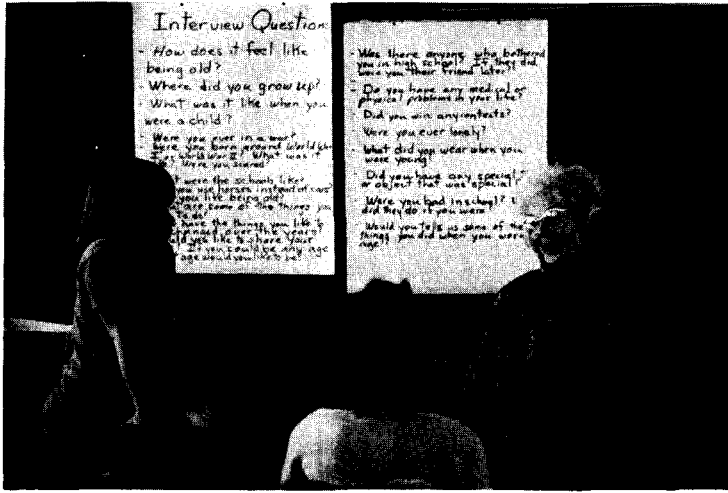 Interview Question
- How does it feel like
being old?
- Where did you grow up?
- What was it like when you
were a child?
- Were you ever in a war?
Were you born around World War
I or World War II? What was it
Were you scared
were the schools like?
you use horses instead of cars
you like being old?
are some of the things you
have the things you like to
changed over the years?
you like to share your
If you could be any age
age would you like to be?
- Was there anyone who bothered
you in high school? If they did
were you their friend later?
- Do you have any medical or
physical problems in your life?
- Did you win any contests?
Were you ever lonely?
- What did you wear when you
were young?
- Did you have any special
or object that was special
Were you bad in school?
did they do if you were
Would you tell us some of the
things you did when you were